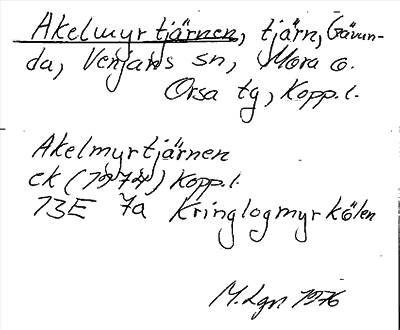 Akelmyrtjärnen, tjärn, Gävun-
da, Venjans sn, Mora o.
Orsa tg, Kopp.l.
Akelmyrtjärnen
ek (1974) Kopp.l.
13E 7a Kringlogmyrkölen
M. Lgn 1976